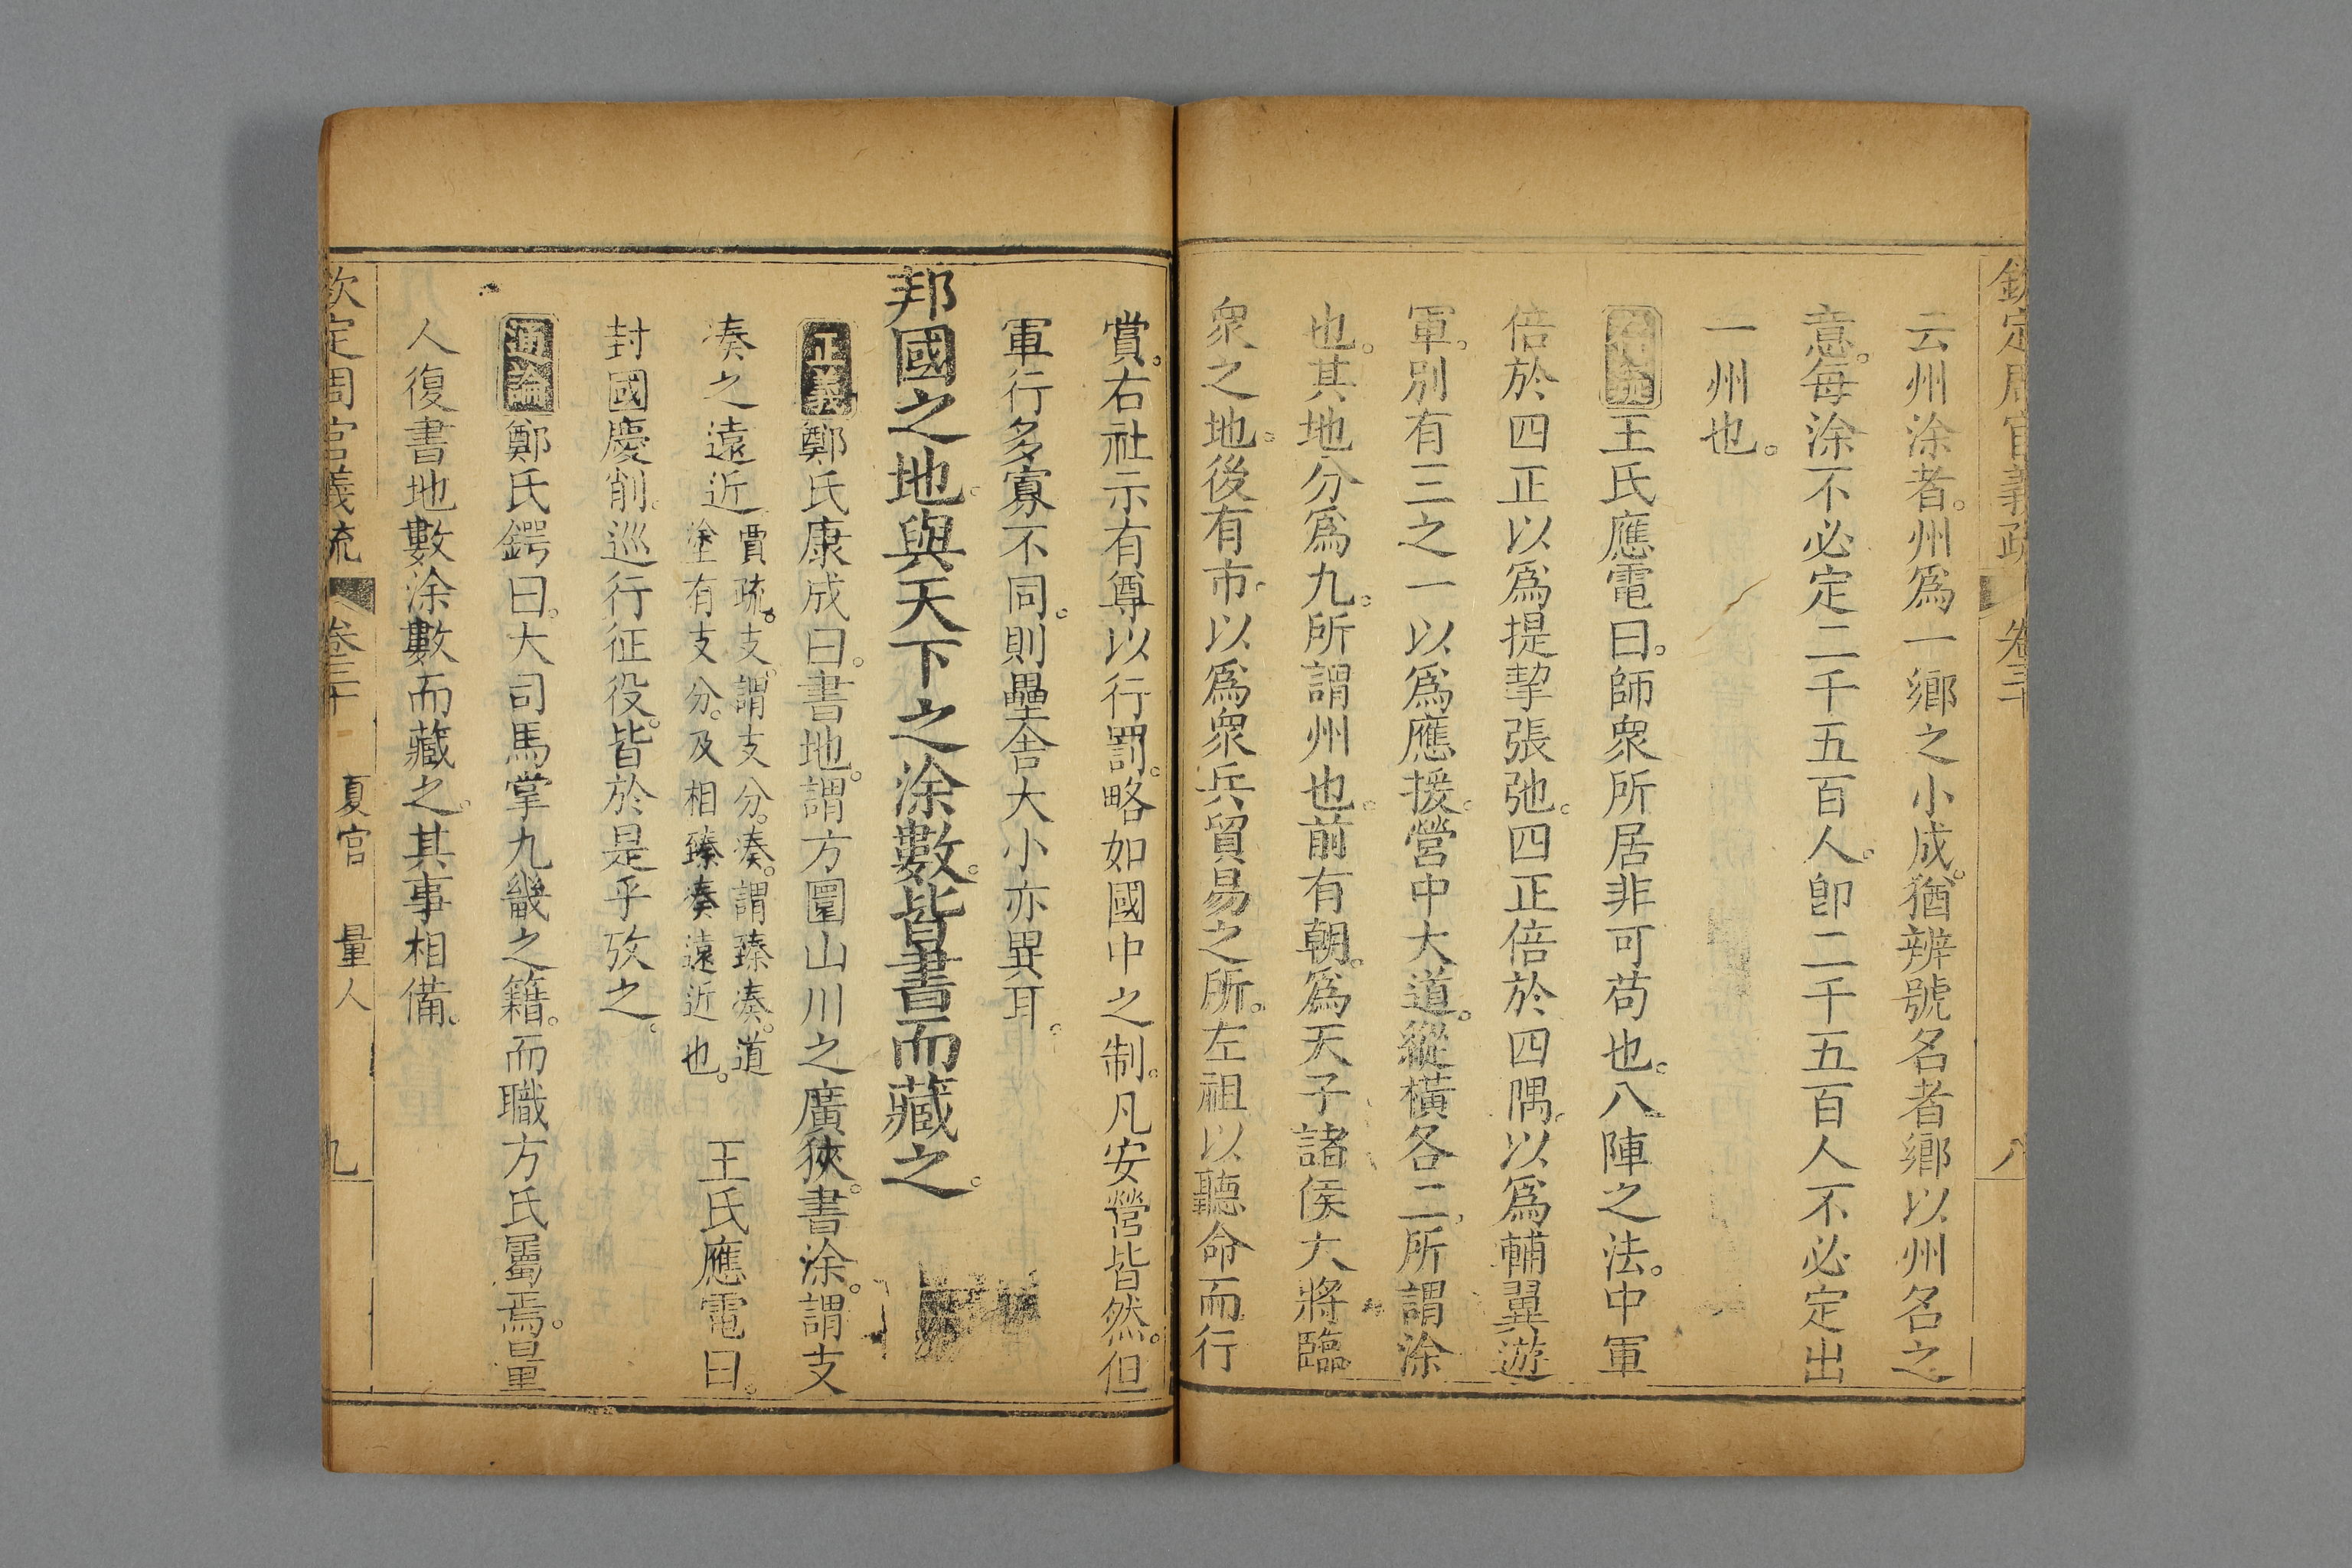 欽定周官義疏 卷三十 八
云州涂者。州爲一鄉之小成。猶辨號名者鄉以州名之
意。每涂不必定二千五百人。卽二千五百人不必定出
一州也。
王氏應電曰。師衆所居非可苟也。八陣之法。中軍
倍於四正以爲提挈張弛。四正倍於四隅。以爲輔翼遊
軍。別有三之一以爲應援。營中大道。縱橫各二所謂涂
也。其地分爲九。所謂州也。前有朝。爲天子諸侯大將臨
衆之地。後有市。以爲衆兵貿易之所。左祖以聽命而行
賞。右社示有尊以行罰。略如國中之制。凡安營皆然。但
軍行多寡不同。則壘舍大小亦異耳。
邦國之地。與天下之涂數。皆書而藏之。
正義 鄭氏康成曰。書地。謂方圍山川之廣狹。書涂。謂支
湊之遠近 賈疏。支。謂支分。湊。謂臻湊。道
塗有支分。及相臻湊遠近也。 王氏應電曰。
封國慶削。巡行征役。皆於是乎攷之。
通論 鄭氏鍔曰。大司馬掌九畿之籍。而職方氏屬焉。量
人復書地數涂數而藏之。其事相備。
欽定周官義疏 卷三十 夏官 量人 九